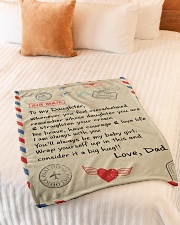 AIR MAIL
To my Daughter,
Whenever you feel overwhelmed
remember whose daughter you are
& straighten your crown
Be brave, have courage & love life
I am always with you
You'll always be my baby girl.
Wrap yourself up in this and
consider it a big hug!!
Love, Dad